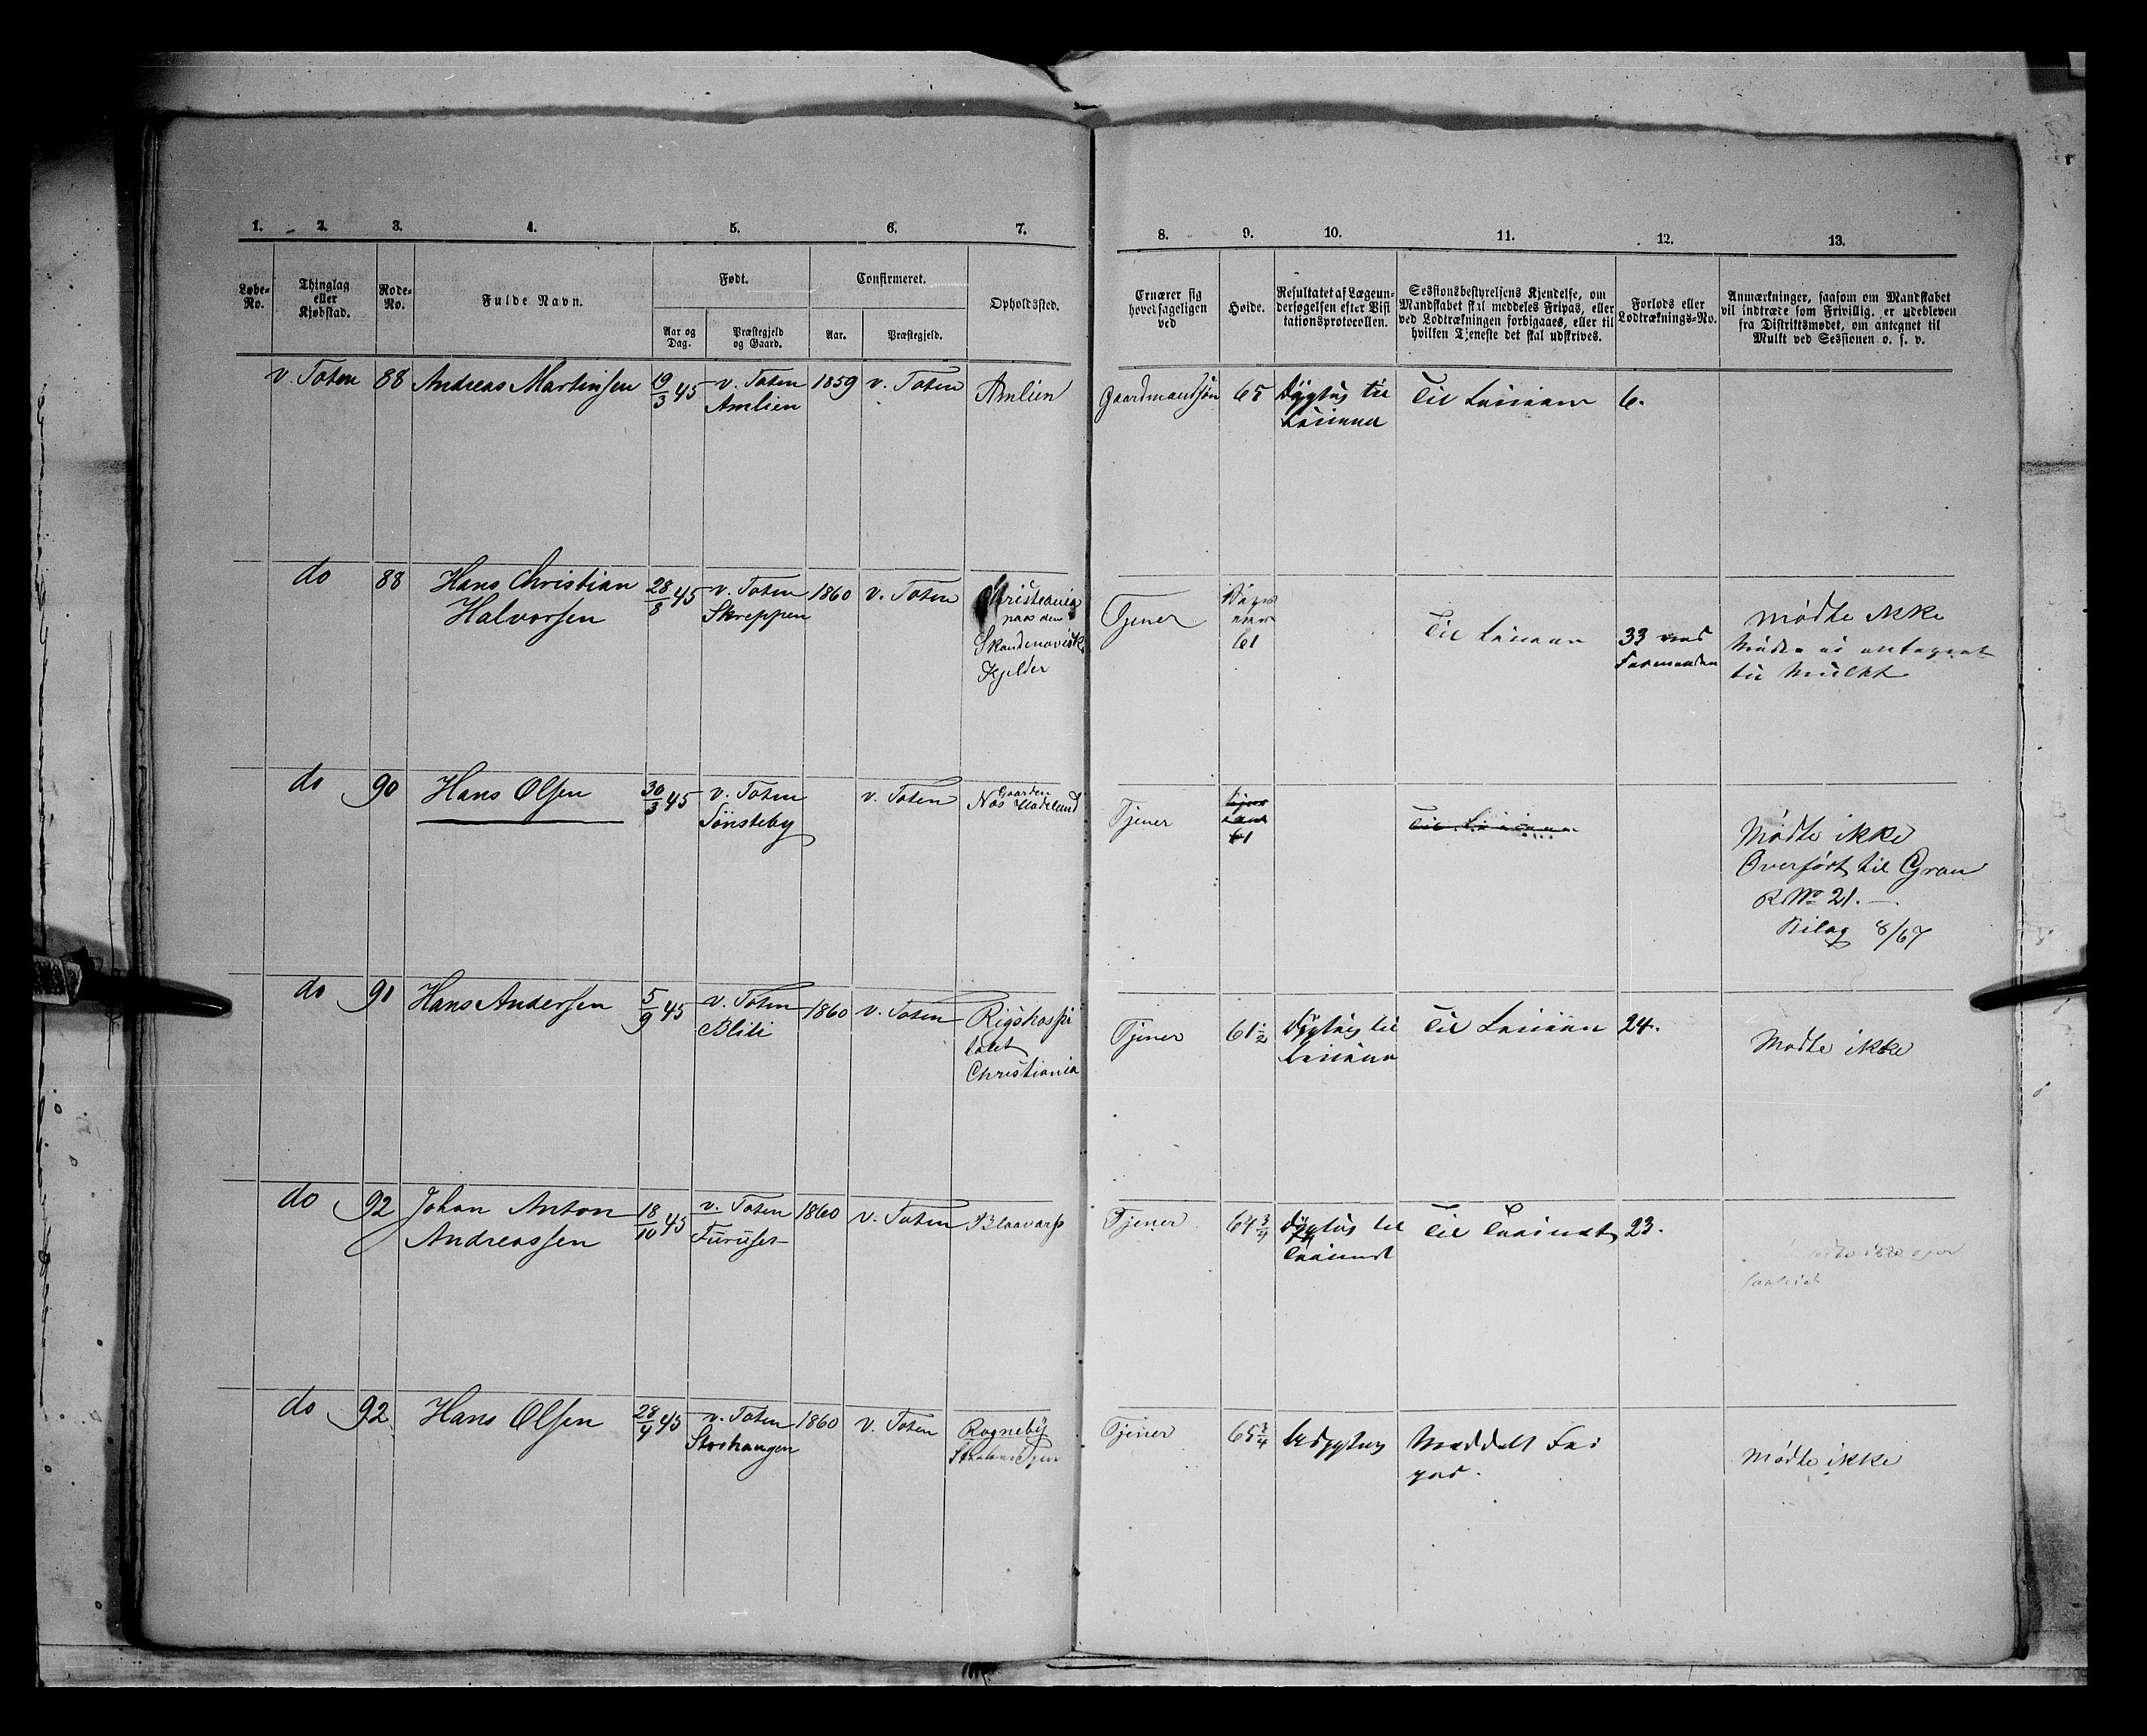 1. 2. 3. 4. 5. 6. 7. 8. 9. 10. 11. 12. 13.
Løbe-No.
Thinglag eller Kjøbstad.
Rode-No.
Fulde Navn.
Født.
Aar og Dag.
Præstegjeld og Gaard.
Confirmeret.
Aar.
Præstegjeld.
Opholdssted.
Ernærer sig hovedsageligen ved
Høide.
Resultatet af Lægeundersøgelsen efter Visitationsprotocollen.
Sessionsbestyrelsens Kjendelse, om Mandskabet skal meddeles Fripas, eller ved Lodtrækningen forbigaaes, eller til hvilken Tjeneste det skal udskrives.
Forlods eller Lodtræknings-No.
Anmærkninger, saasom om Mandskabet vil indtræde som Frivillig, er udebleven fra Distriktsmødet, om antegnet til Mulkt ved Sessionen o. s. v.
v. Toten 88 Andreas Martinsen 19/3 45 v. Toten 1859 v. Toten Amlien Gaardmandssøn 65 Dygtig til Til Linien 6.
Amlien Linien
do 88 Hans Christian 28/8 45 v. Toten 1860 v. Toten Christiania Tjener Mødte ikke
Halvorsen Skreppen paa den 61 Til Linien 33 ved
Skandinavisk Formanden til Mulkt
Kjelder
do 90 Hans Olsen 30/3 45 v. Toten v. Toten Gaarden Tjener 61 Til Linien Mødte ikke
Sønsteby Overført til Gran
R No 21.
Bilag 8/67
do 91 Hans Andersen 5/9 45 v. Toten 1860 v. Toten Rigshospi Tjener 61 1/2 Dygtig til Til Linien 24. Mødte ikke
Blili talet Linien
Christiania
do 92 Johan Anton 18/10 45 v. Toten 1860 v. Toten Blaavarp Tjener 64 3/4 Dygtig til Til Trainet 23.
Andreassen Furuset Trainet
do 92 Hans Olsen 28/4 45 v. Toten 1860 v. Toten Rogneby Tjener 65 3/4 Udygtig Meddelt Fri Mødte ikke
Storhaugen pas.